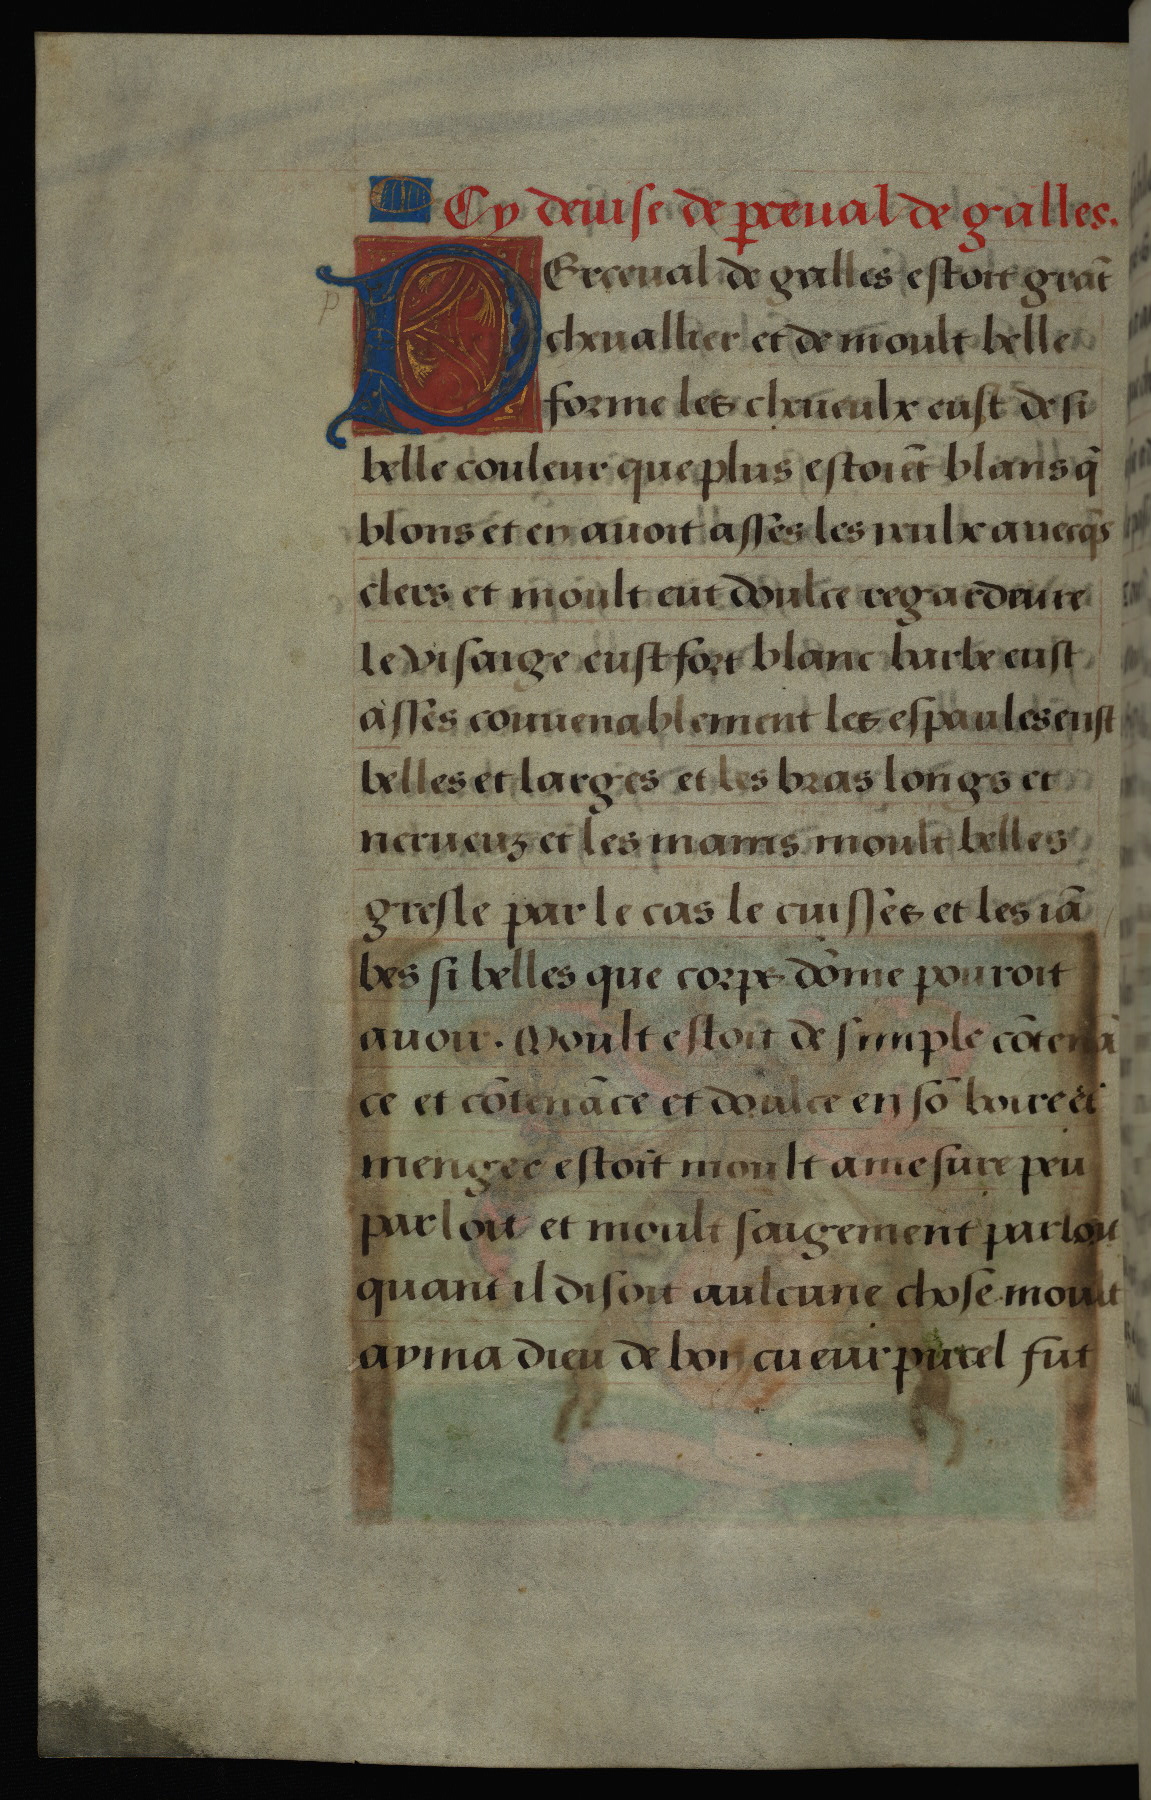 Cy deuise de ꝑceual de galles.
PErceual de galles estoit grāt
cheuallier et de moult belle
forme les cheueulx eust de si
belle couleur que plus estoiēt blans q̄
blons et en auoit assès les yeulx auecq̄s
clers et moult eut doulce regardeure
le visaige eust fort blanc barbe eust
àssès conuenablement les espaules eust
belles et larges et les bras longs et
nerueuz et les mains moult belles
gresle par le cas le cuissès et les iā
bes si belles que corps dōme pouroit
auoir. Moult estoit de simple cōtenā
ce et cōtenāce et doulce en sō boire et
menger estoit moult a mesure peu
parloit et moult saigement parloit
quant il disoit aulcune chose moult
ayma dieu de bon cueur pucel fut
p